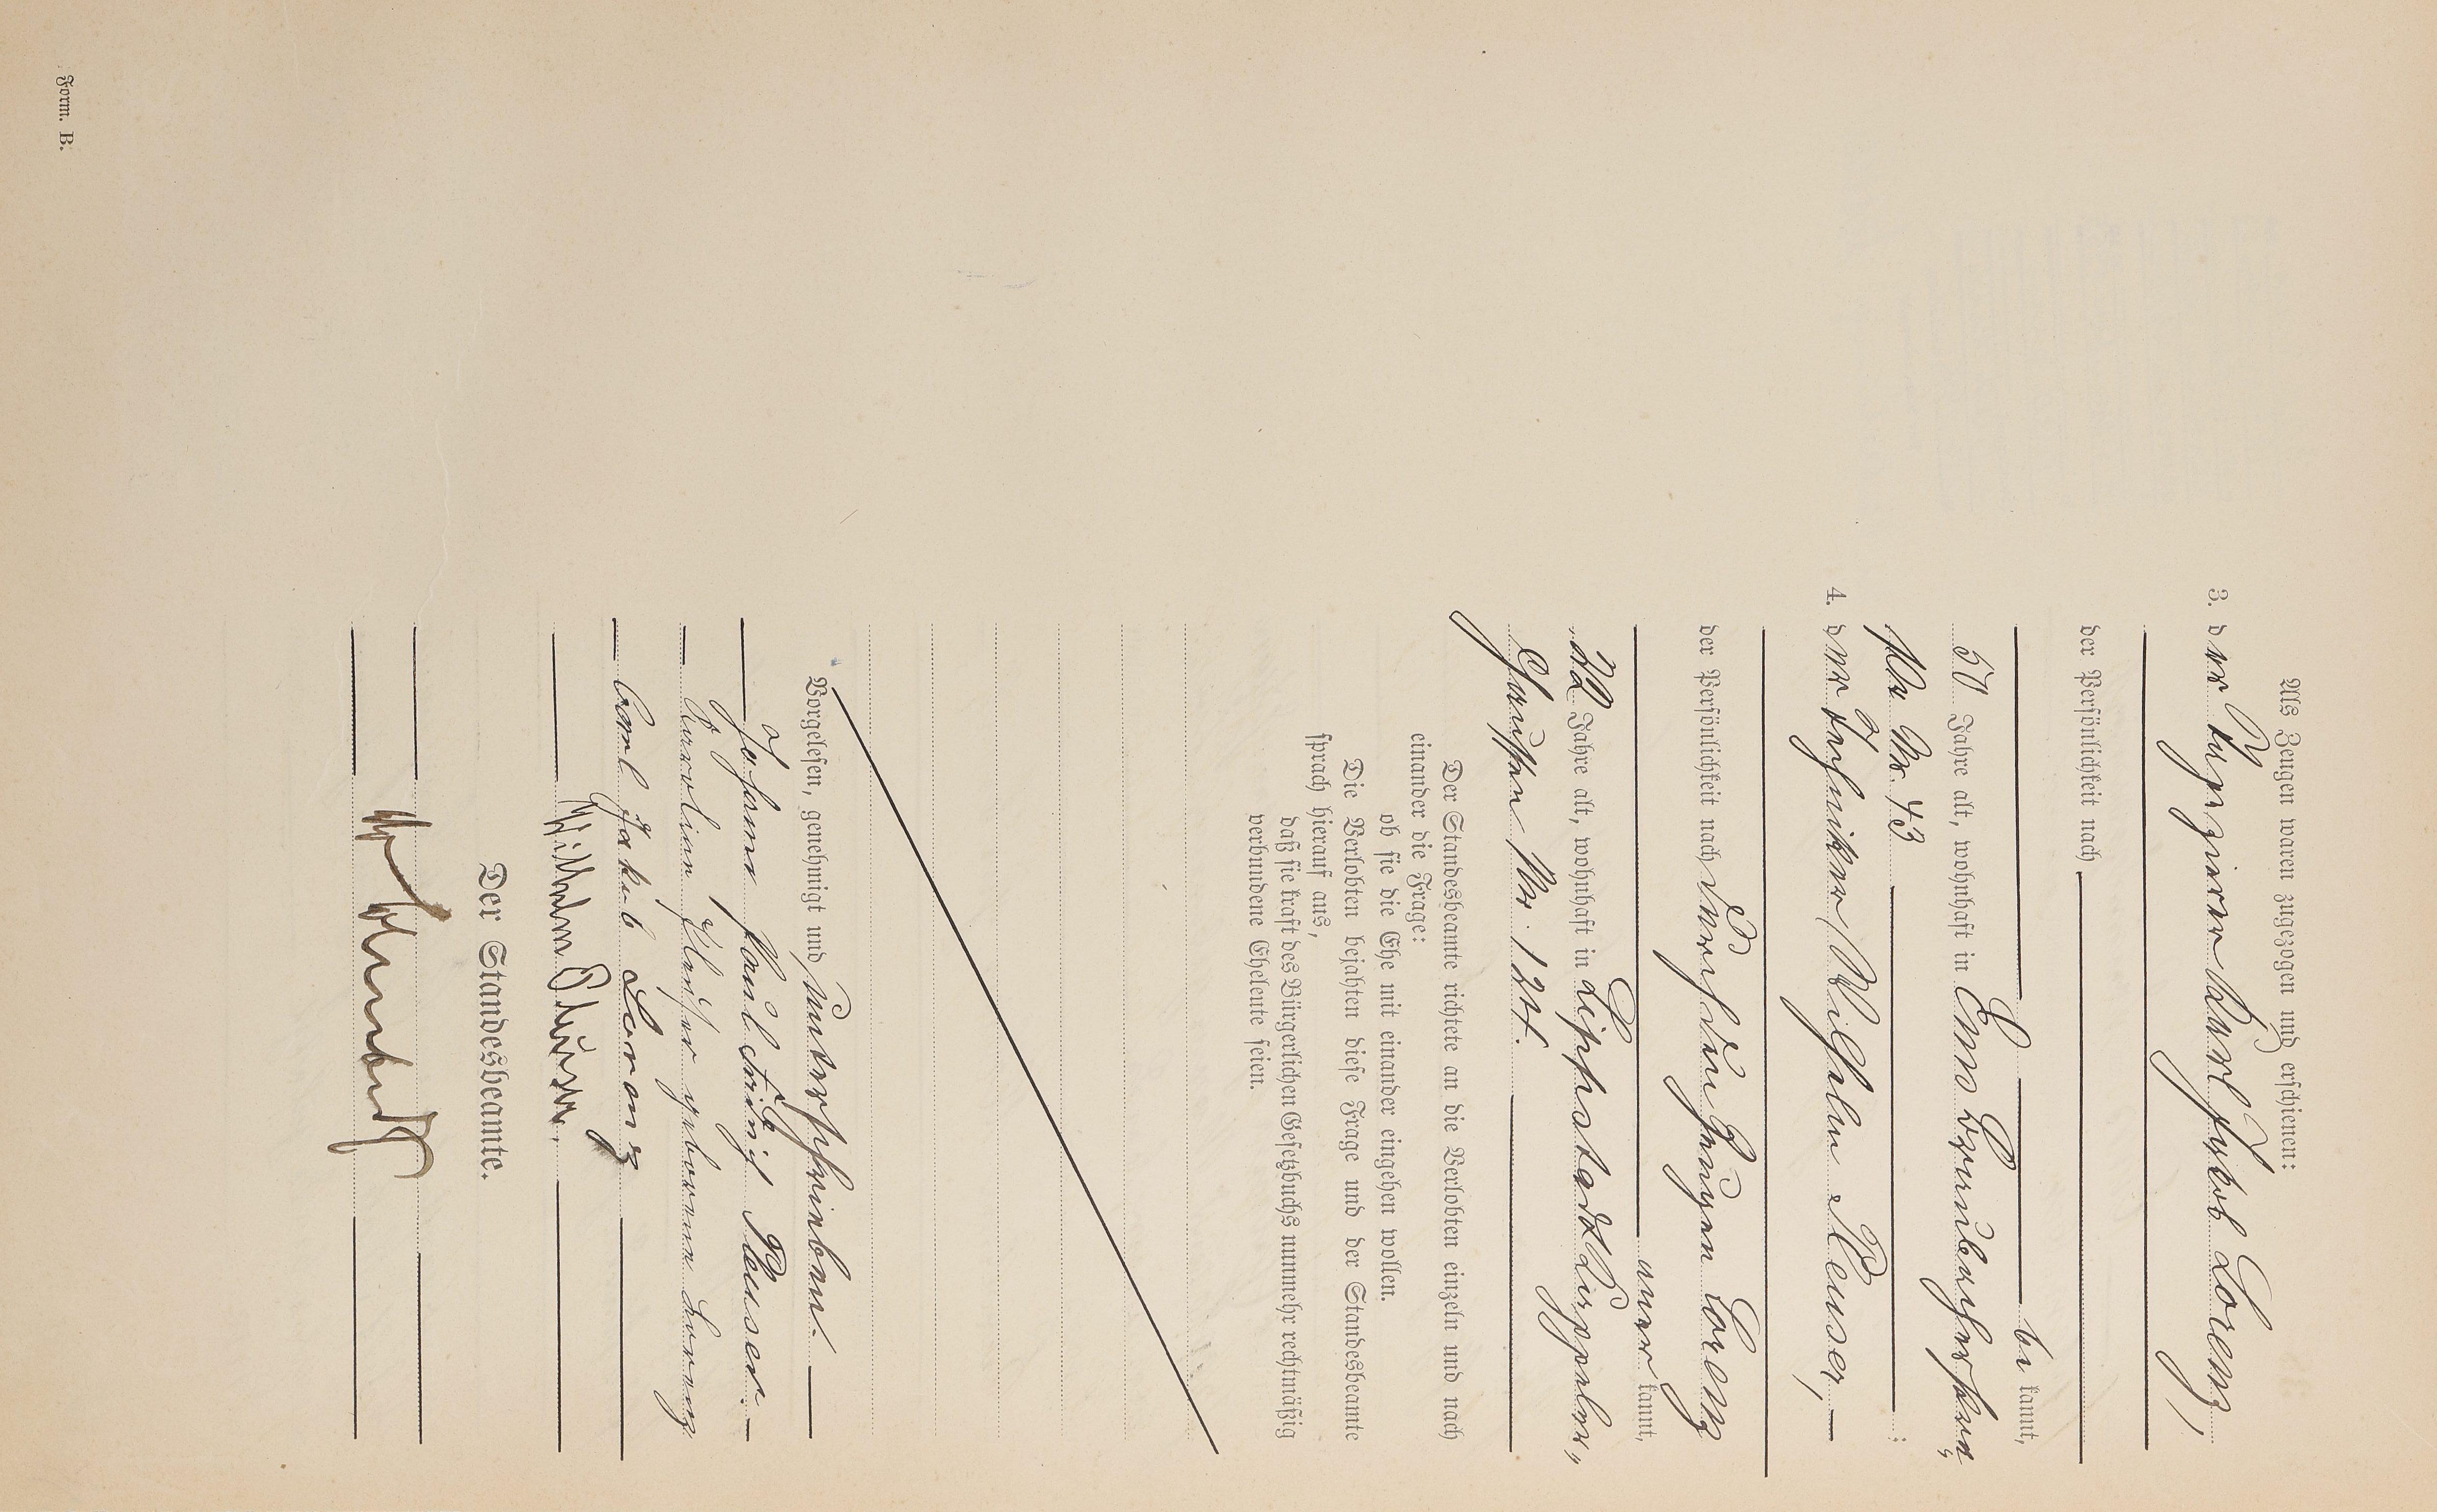 Als Zeugen waren zugezogen und erschienen:
3. der Karl Jakob Lorenz,
der Persönlichkeit nach
be kannt,
50 Jahre alt, wohnhaft in Ems
Nr. 43 ;
4. der Techniker Wilhelm Reuser,
der Persönlichkeit nach durch den Zeugen Lorenz
aner kannt,
22 Jahre alt, wohnhaft in Lippstadt, Lipperder„
Chaussee Nr. 124.
Der Standesbeamte richtete an die Verlobten einzeln und nach
einander die Frage:
ob sie die Ehe mit einander eingehen wollen.
Die Verlobten bejahten diese Frage und der Standesbeamte
sprach hierauf aus,
daß sie kraft des Bürgerlichen Gesetzbuchs nunmehr rechtmäßig
verbundene Eheleute seien.
Vorgelesen, genehmigt und unterschrieben.
Johann Paul Reuser.
geborene Lorenz
Carl Jakob Lorenz
Wilhelm Reuser.
Der Standesbeamte.
Form. B.